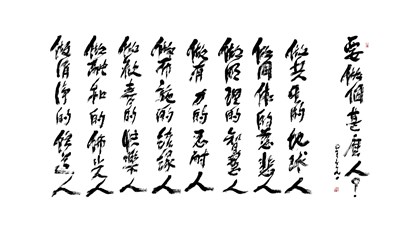 要做個甚麼人?
做共生的地球人
做同體的慈悲人
做明理的智慧人
做有力的忍耐人
做布施的結緣人
做歡喜的快樂人
做融和的佛光人
做清淨的修道人